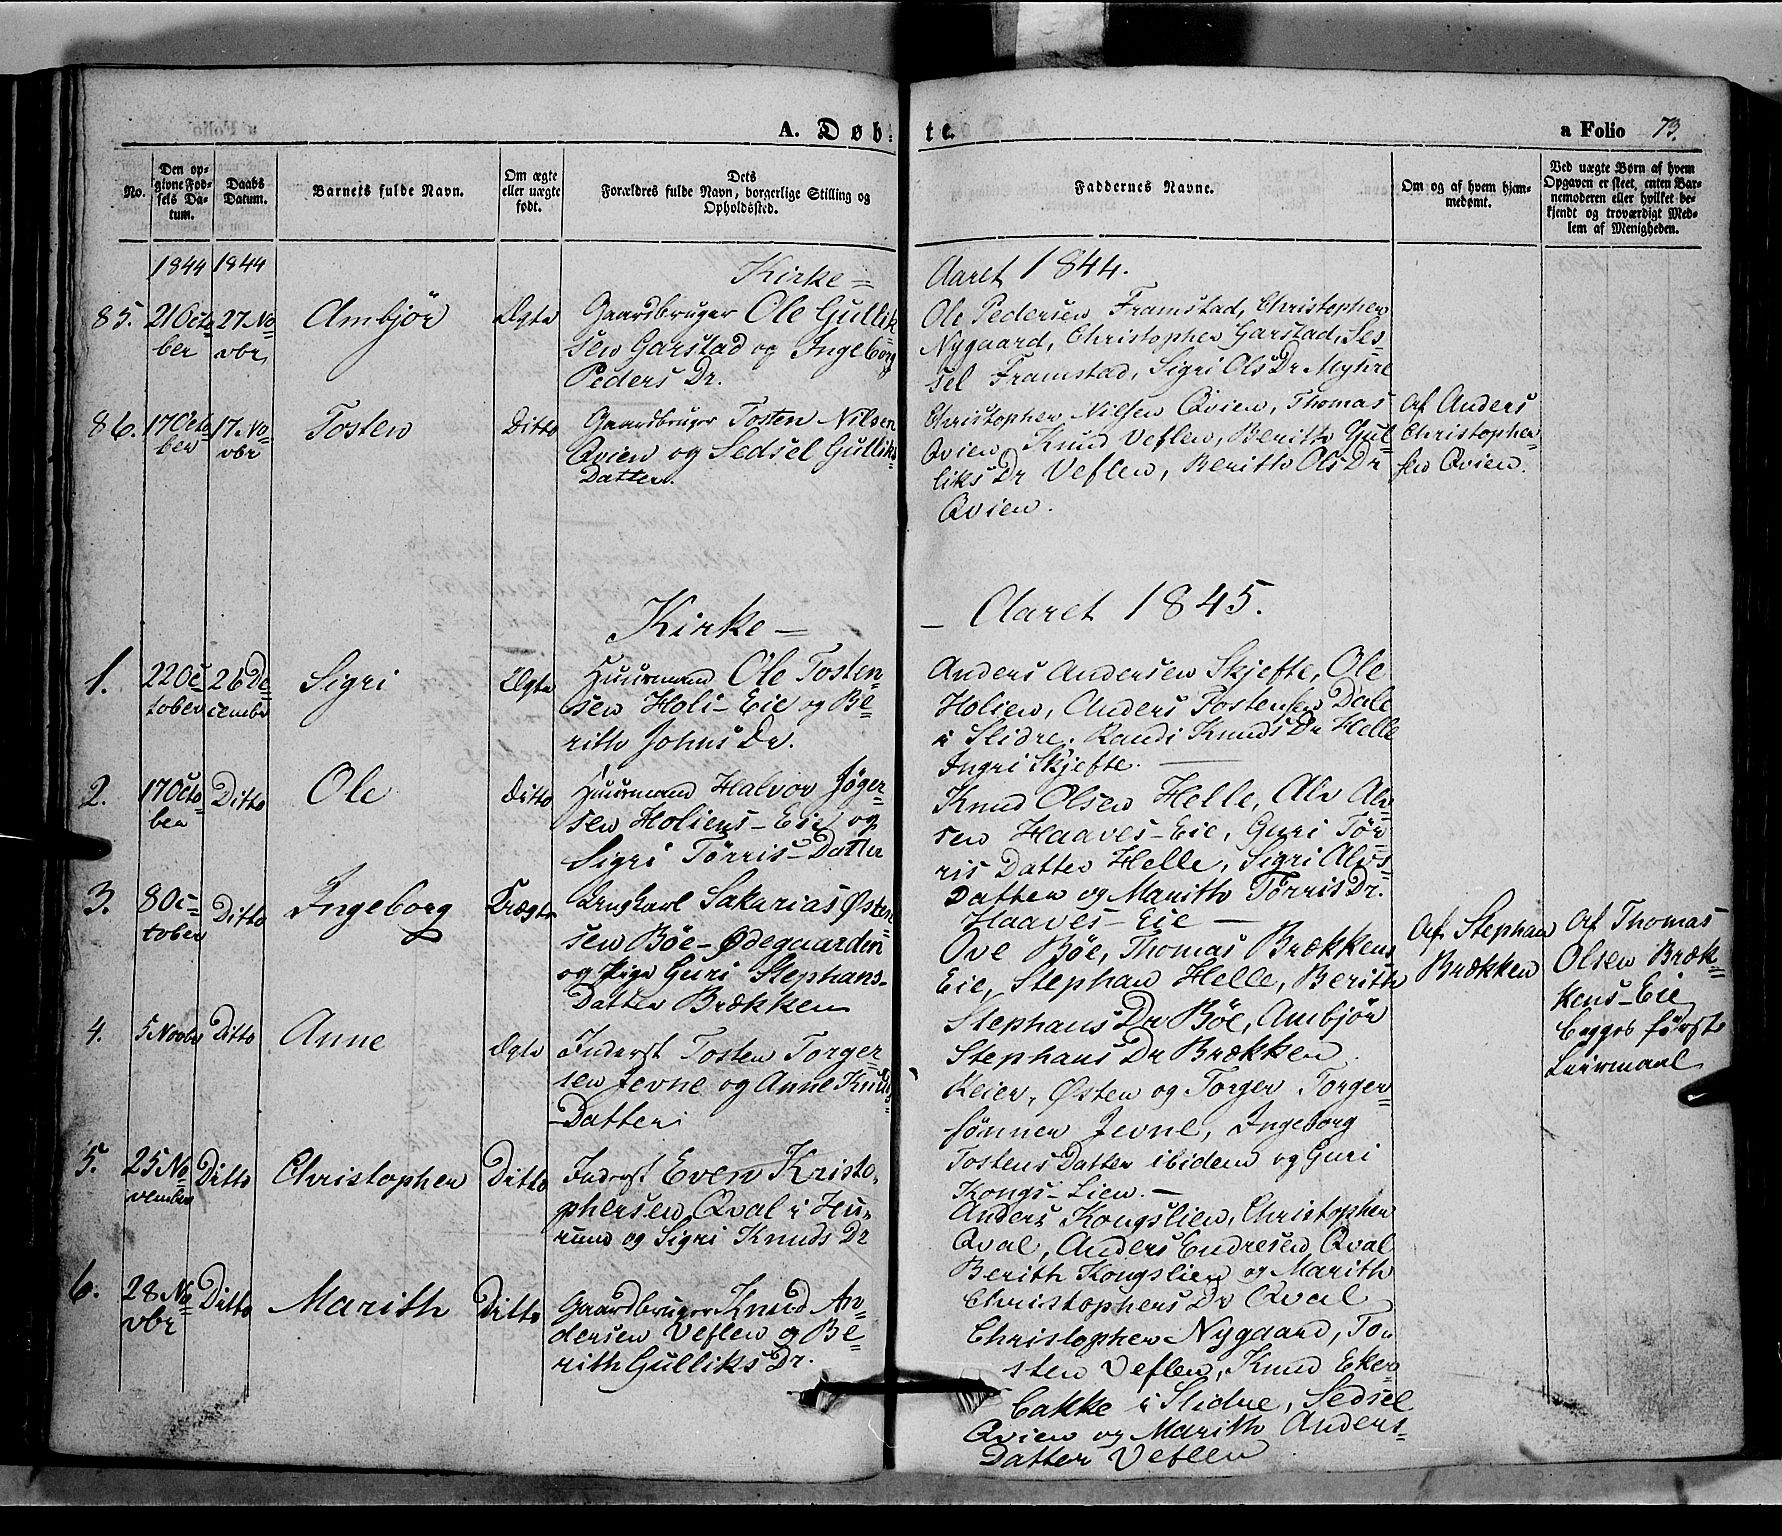 A. Døbte.
a Folio 73.
No.
Den opgivne Fødsels Datum.
Daabs Datum.
Barnets fulde Navn.
Om ægte eller uægte født.
Dets Forældres fulde Navn, borgerlige Stilling og Opholdssted.
Faddernes Navne.
Om og af hvem hjemmedøbt.
Ved uægte Børn af hvem Opgaven er skeet, enten Barnemoderen eller hvilket bekjendt og troværdigt Medlem af Menigheden.
1844 1844 Kirke= Aaret 1844.
85. 21 Octo=
ber
27 No=
vbr,
Ambjör
Ægte
Gaardbruger Ole Gullik=
sen Garstad og Ingeborg
Peders Dr.
Ole Pedersen Framstad, Christopher
Nygaard, Christopher Garstad, Ses=
sel Framstad, Sigri Ols Dr Myhre
86. 17 Octo=
ber
17. No=
vbr
Tosten
Ditto
Gaardbruger Tosten Nilsen
Qvien og Sedsel Gulliks=
Datter.
Christopher Nilsen Qvien, Thomas
Qvien, Knud Veflen, Berith Gul=
liks Dr Veflen, Berith Ols Dr
Qvien.
Af Anders
Christopher=
sen Qvien.
Kirke — — Aaret 1845.
1. 22 Oc=
tober
26 De=
cembr
Sigri
Ægte
Huusmand Ole Tosten=
sen Holi-Eie og Be=
rith Johns Dr.
Anders Andersen Skjefte, Ole
Holien, Anders Tostensen Dale
i Slidre. Randi Knuds Dr Helle
Ingri Skjefte. —
2. 17 Octo=
ber
Ditto
Ole
Ditto
Huusmand Halvor Jöger=
sen Holiens-Eie og
Sigri Törris-Datter
Knud Olsen Helle, Alv Alv=
sen Haaves-Eie, Guri Tör=
ris Datter Helle, Sigri Alvs=
Datter og Marith Törris Dr.
Haaves-Eie —
3. 8 Oc=
tober
Ditto
Ingeborg
Uægte
Ungkarl Sakarias Østen=
sen Böe-Ødegaarden
og Pige Guri Stephans=
Datter Brækken
Ove Böe, Thomas Brækkens
Eie, Stephan Helle, Berith
Stephans Dr Böe, Ambjör
Stephans Dr Brækken
Af Stephan
Brækken
Af Thomas
Olsen Bræk=
kens-Eie
begges förste
Leiermaal
4. 5 Novbr Ditto
Anne
Ægte
Inderst Tosten Torger=
sen Jevne og Anne Knuds=
Datter
Reier, Østen og Torger Torger=
sönner Jevne, Ingeborg
Tostens Datter ibidem og Guri
Kongs-Lien. —
5. 25 No=
vember
Ditto
Christopher
Ditto
Inderst Even Kristo=
phersen Qval i Hu=
rum og Sigri Knuds Dr
Anders Kongslien, Christopher
Qval, Anders Endresen Qval
Berith Kongslien og Marith
Christophers Dr Qval
6. 28 No=
vbr
Ditto
Marith
Ditto
Gaardbruger Knud An=
dersen Veflen og Be=
rith Gulliks Dr.
Christopher Nygaard, To=
sten Veflen, Knud Eker=
bakke i Slidre, Sedsel
Qvien og Marith Anders=
Datter Veflen